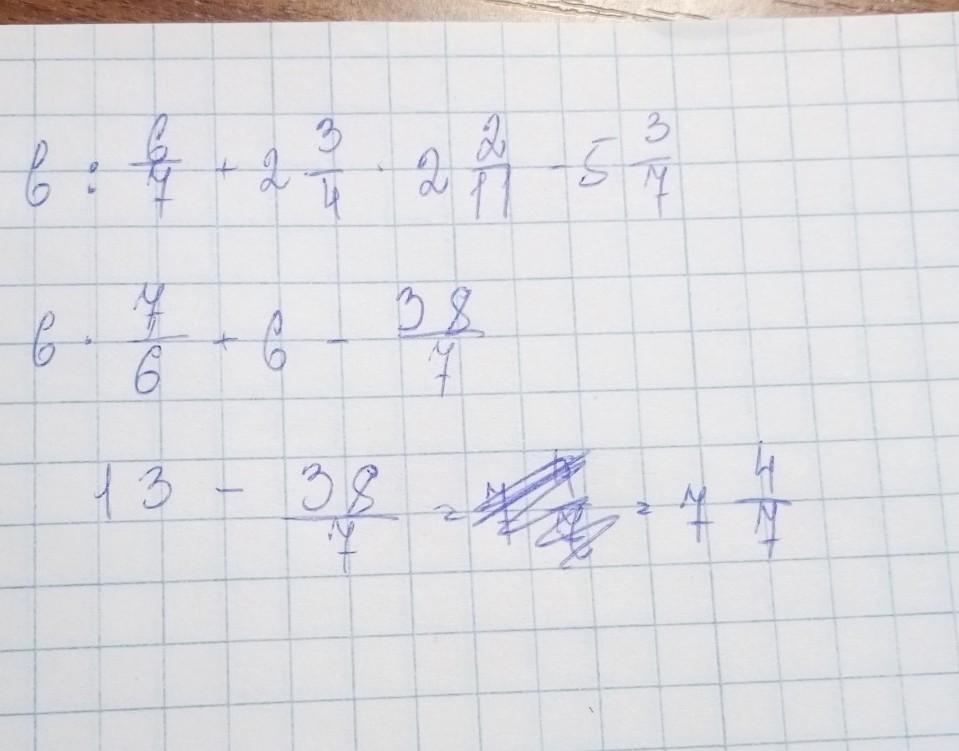 6 : 6/7 + 2 3/4 · 2 2/11 - 5 3/7
6 · 7/6 + 6 - 38/7
13 - 38/7 = = 7 4/7